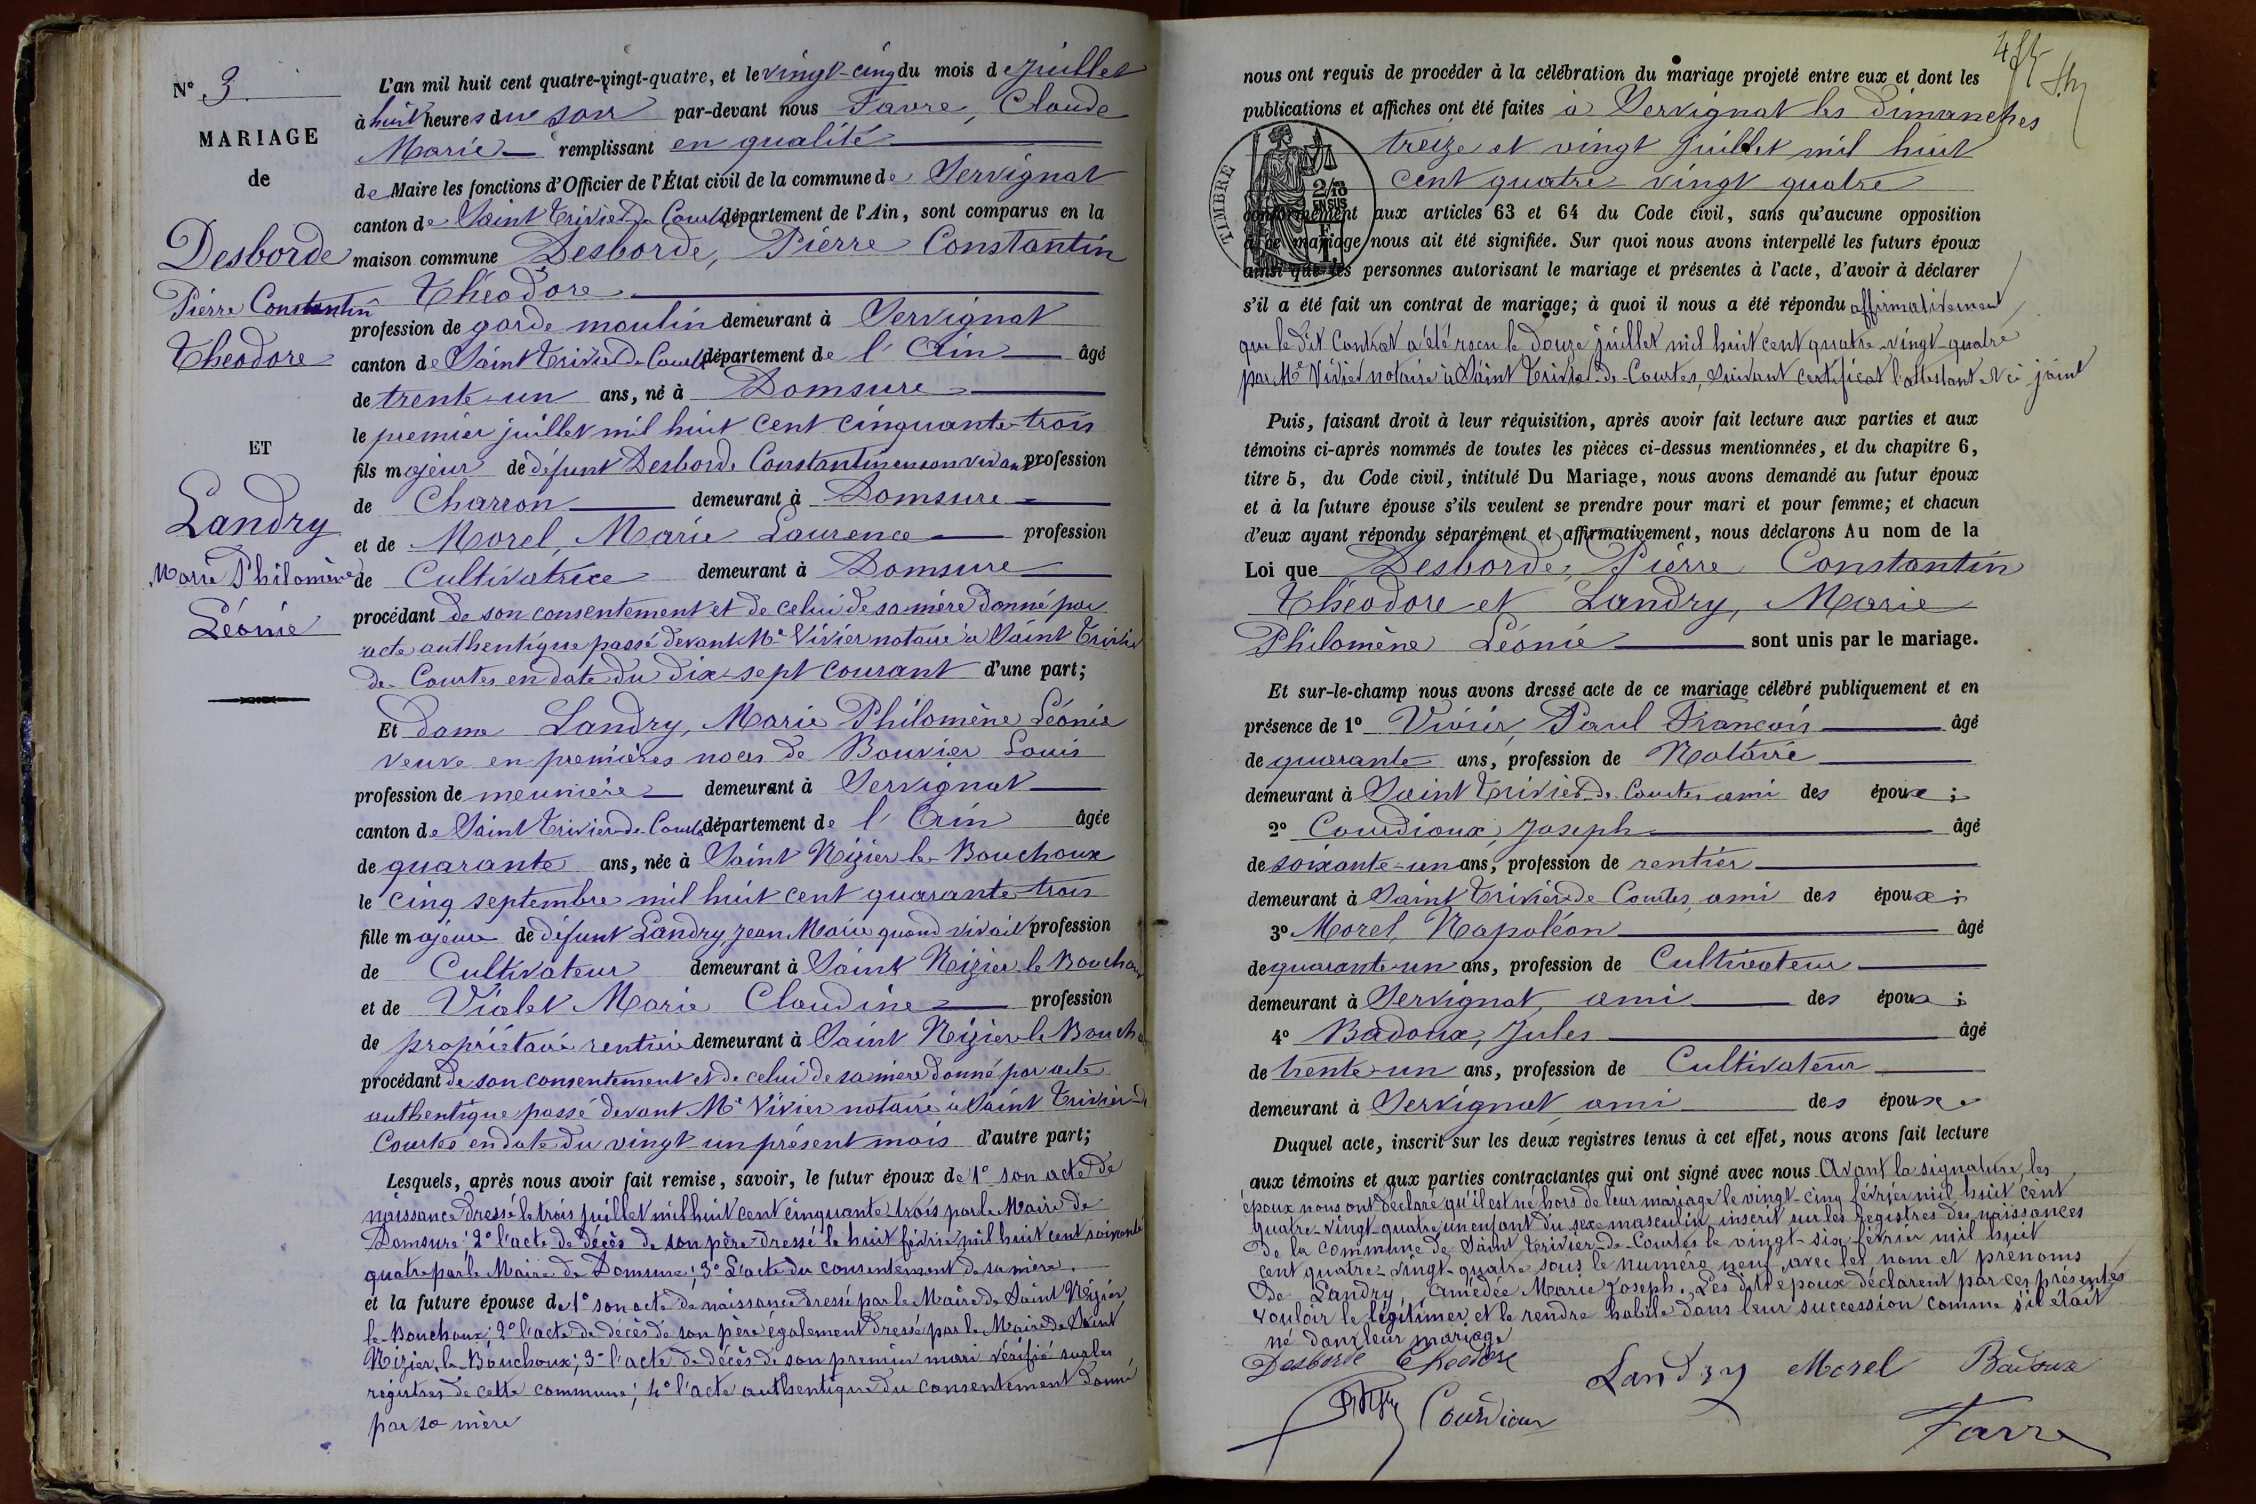 N° 3
MARIAGE
de
Desborde
Pierre Constantin
Théodore
ET
Landry
Marie Philomène
Léonie
L'an mil huit cent quatre-vingt-quatre, et le vingt-cinq du mois de Juillet
à huit heures du soir par-devant nous Favre, Claude
Marie remplissant en qualité
de Maire les fonctions d'Officier de l'État civil de la commune de Servignat
canton de Saint Trivier de Courtes département de l'Ain, sont comparus en la
maison commune Desborde, Pierre Constantin
Théodore
profession de garde moulin demeurant à Servignat
canton de Saint Trivier de Courtes département de l'Ain âgé
de trente-un ans, né à Domsure
le premier juillet mil huit cent cinquante-trois
fils majeur de défunt Desborde Constantin en son vivant profession
de Charron demeurant à Domsure
et de Morel, Marie Laurence profession
de Cultivatrice demeurant à Domsure
procédant de son consentement et de celui de sa mère donné par
acte authentique passé devant Me Vivier notaire à Saint Trivier
de Courtes en date du dix-sept courant d'une part;
Et dame Landry, Marie Philomène Léonie
veuve en premières noces de Bouvier Louis
profession de meunière demeurant à Servignat
canton de Saint Trivier de Courtes département de l'Ain âgée
de quarante ans, née à Saint Nizier le Bouchoux
le cinq septembre mil huit cent quarante-trois
fille majeure de défunt Landry, Jean Marie quand vivait profession
de Cultivateur demeurant à Saint Nizier le Bouchoux
et de Violet Marie Claudine profession
de propriétaire rentière demeurant à Saint Nizier le Boucho
procédant de son consentement et de celui de sa mère donné par acte
authentique passé devant Me Vivier notaire à Saint Trivier de
Courtes en date du vingt-un présent mois d'autre part;
Lesquels, après nous avoir fait remise, savoir, le futur époux de 1° son acte de
naissance dressé le trois juillet mil huit cent cinquante trois par le Maire de
Domsure; 2° l'acte de décès de son père dressé le huit février mil huit cent soixante
quatre par le Maire de Domsure; 3° L'acte du consentement de sa mère.
et la future épouse de 1° son acte de naissance dressé par le Maire de Saint Nizier
le Bouchoux; 2° l'acte de décès de son père également dressé par le Maire de Saint
Nizier le Bouchoux; 3° l'acte de décès de son premier mari vérifié sur les
registres de cette commune; 4° l'acte authentique du consentement donné
par sa mère
nous ont requis de procéder à la célébration du mariage projeté entre eux et dont les
publications et affiches ont été faites à Servignat les dimanches
treize et vingt Juillet mil huit
cent quatre-vingt quatre
TIMBRE
2/10
EN SUS
conformément aux articles 63 et 64 du Code civil, sans qu'aucune opposition
à ce mariage nous ait été signifiée. Sur quoi nous avons interpellé les futurs époux
ainsi que les personnes autorisant le mariage et présentes à l'acte, d'avoir à déclarer
s'il a été fait un contrat de mariage; à quoi il nous a été répondu affirmativement
que le dit Contrat a été reçu le douze juillet mil huit cent quatre-vingt-quatre
par Me Vivier notaire à Saint Trivier-de-Courtes, suivant certificat l'attestant et ci joint
Puis, faisant droit à leur réquisition, après avoir fait lecture aux parties et aux
témoins ci-après nommés de toutes les pièces ci-dessus mentionnées, et du chapitre 6,
titre 5, du Code civil, intitulé Du Mariage, nous avons demandé au futur époux
et à la future épouse s'ils veulent se prendre pour mari et pour femme; et chacun
d'eux ayant répondu séparément et affirmativement, nous déclarons Au nom de la
Loi que Desborde, Pierre Constantin
Théodore et Landry, Marie
Philomène Léonie sont unis par le mariage.
Et sur-le-champ nous avons dressé acte de ce mariage célébré publiquement et en
présence de 1° Vivier, Paul François âgé
de quarante ans, profession de Notaire
demeurant à Saint Trivier-de-Courtes ami des époux;
2° Courdioux, Joseph âgé
de soixante-un ans, profession de rentier
demeurant à Saint Trivier de Courtes, ami des époux;
3° Morel, Napoléon âgé
de quarante-un ans, profession de Cultivateur
demeurant à Servignat, ami des époux;
4° Badoux, Jules âgé
de trente-un ans, profession de Cultivateur
demeurant à Servignat ami des époux
Duquel acte, inscrit sur les deux registres tenus à cet effet, nous avons fait lecture
aux témoins et aux parties contractantes qui ont signé avec nous Avant la signature, les
époux nous ont déclaré qu'il est né hors de leur mariage le vingt-cinq février mil huit cent
quatre-vingt-quatre un enfant du sexe masculin, inscrit sur les registres des naissances
de la commune de Saint Trivier-de-Courtes le vingt-six février mil huit
cent quatre-vingt-quatre sous le numéro neuf, avec les nom et prénoms
de Landry, Amédée Marie Joseph. Les dits époux déclarent par ces présentes
vouloir le légitimer et le rendre habile dans leur succession comme s'il était
né dans leur mariage
Desborde Théodore Landry Morel Badoux
Courdioux Favre